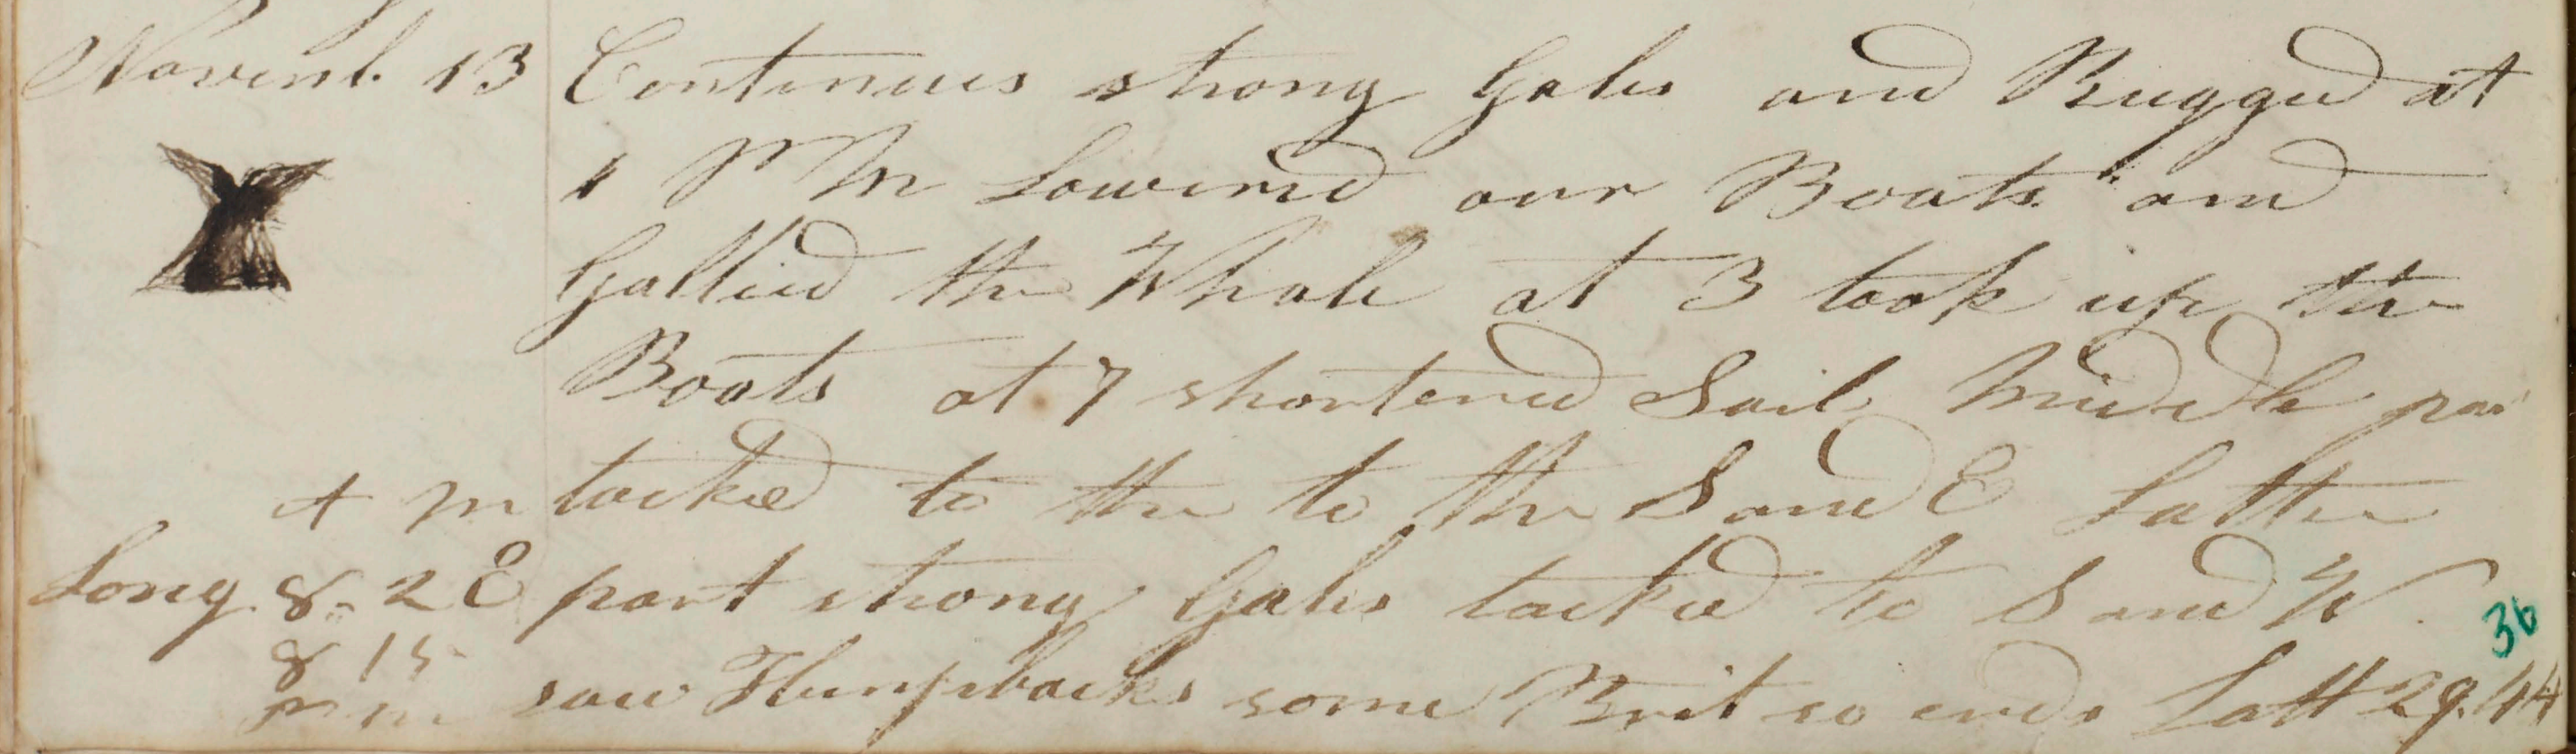 Novemb. 13 Continues strong Gales and Rugged at
1 P M Lowered our Boats and
Gallied the Whale at 3 took up the
Boats at 7 shortened Sail Middle par
A M tacked to the to the S and E Latter
Long. 8. 2 E part strong Gales tacked to S and W.
8 15
P M saw Humpbacks some Brit so ends Latt 29.44
36